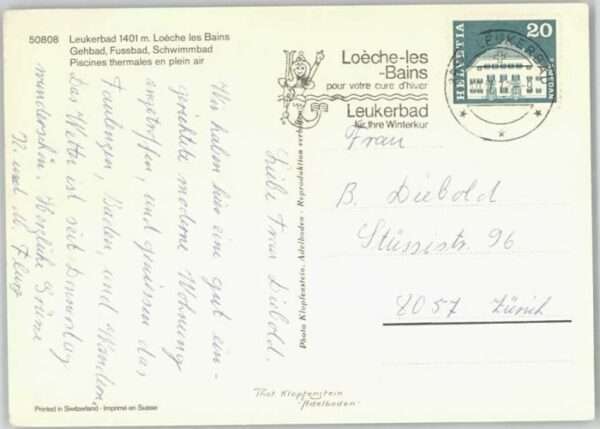 50808 Leukerbad 1401 m. Loèche les Bains
Gehbad, Fussbad, Schwimmbad
Piscines thermales en plein air
Loèche-les
-Bains
pour votre cure d'hiver
Leukerbad
für Ihre Winterkur
HELVETIA
20
SAMEDAN
LEUKERBAD
Liebe Frau Diebold.
Wir haben hier eine gut ein-
grichtete moderne Wohnung
angetroffen, und geniessen das
Faulenzen, Baden, und Wandern.
Das Wetter ist seit Donnerstag
wunderschön. Herzliche Grüsse
N. und M. Flury
Photo Klopfenstein, Adelboden - Reproduktion verboten
Frau
B. Diebold
Stüssistr. 96
8057 Zürich
Phot Klopfenstein
"Adelboden"
Printed in Switzerland - Imprimé en Suisse